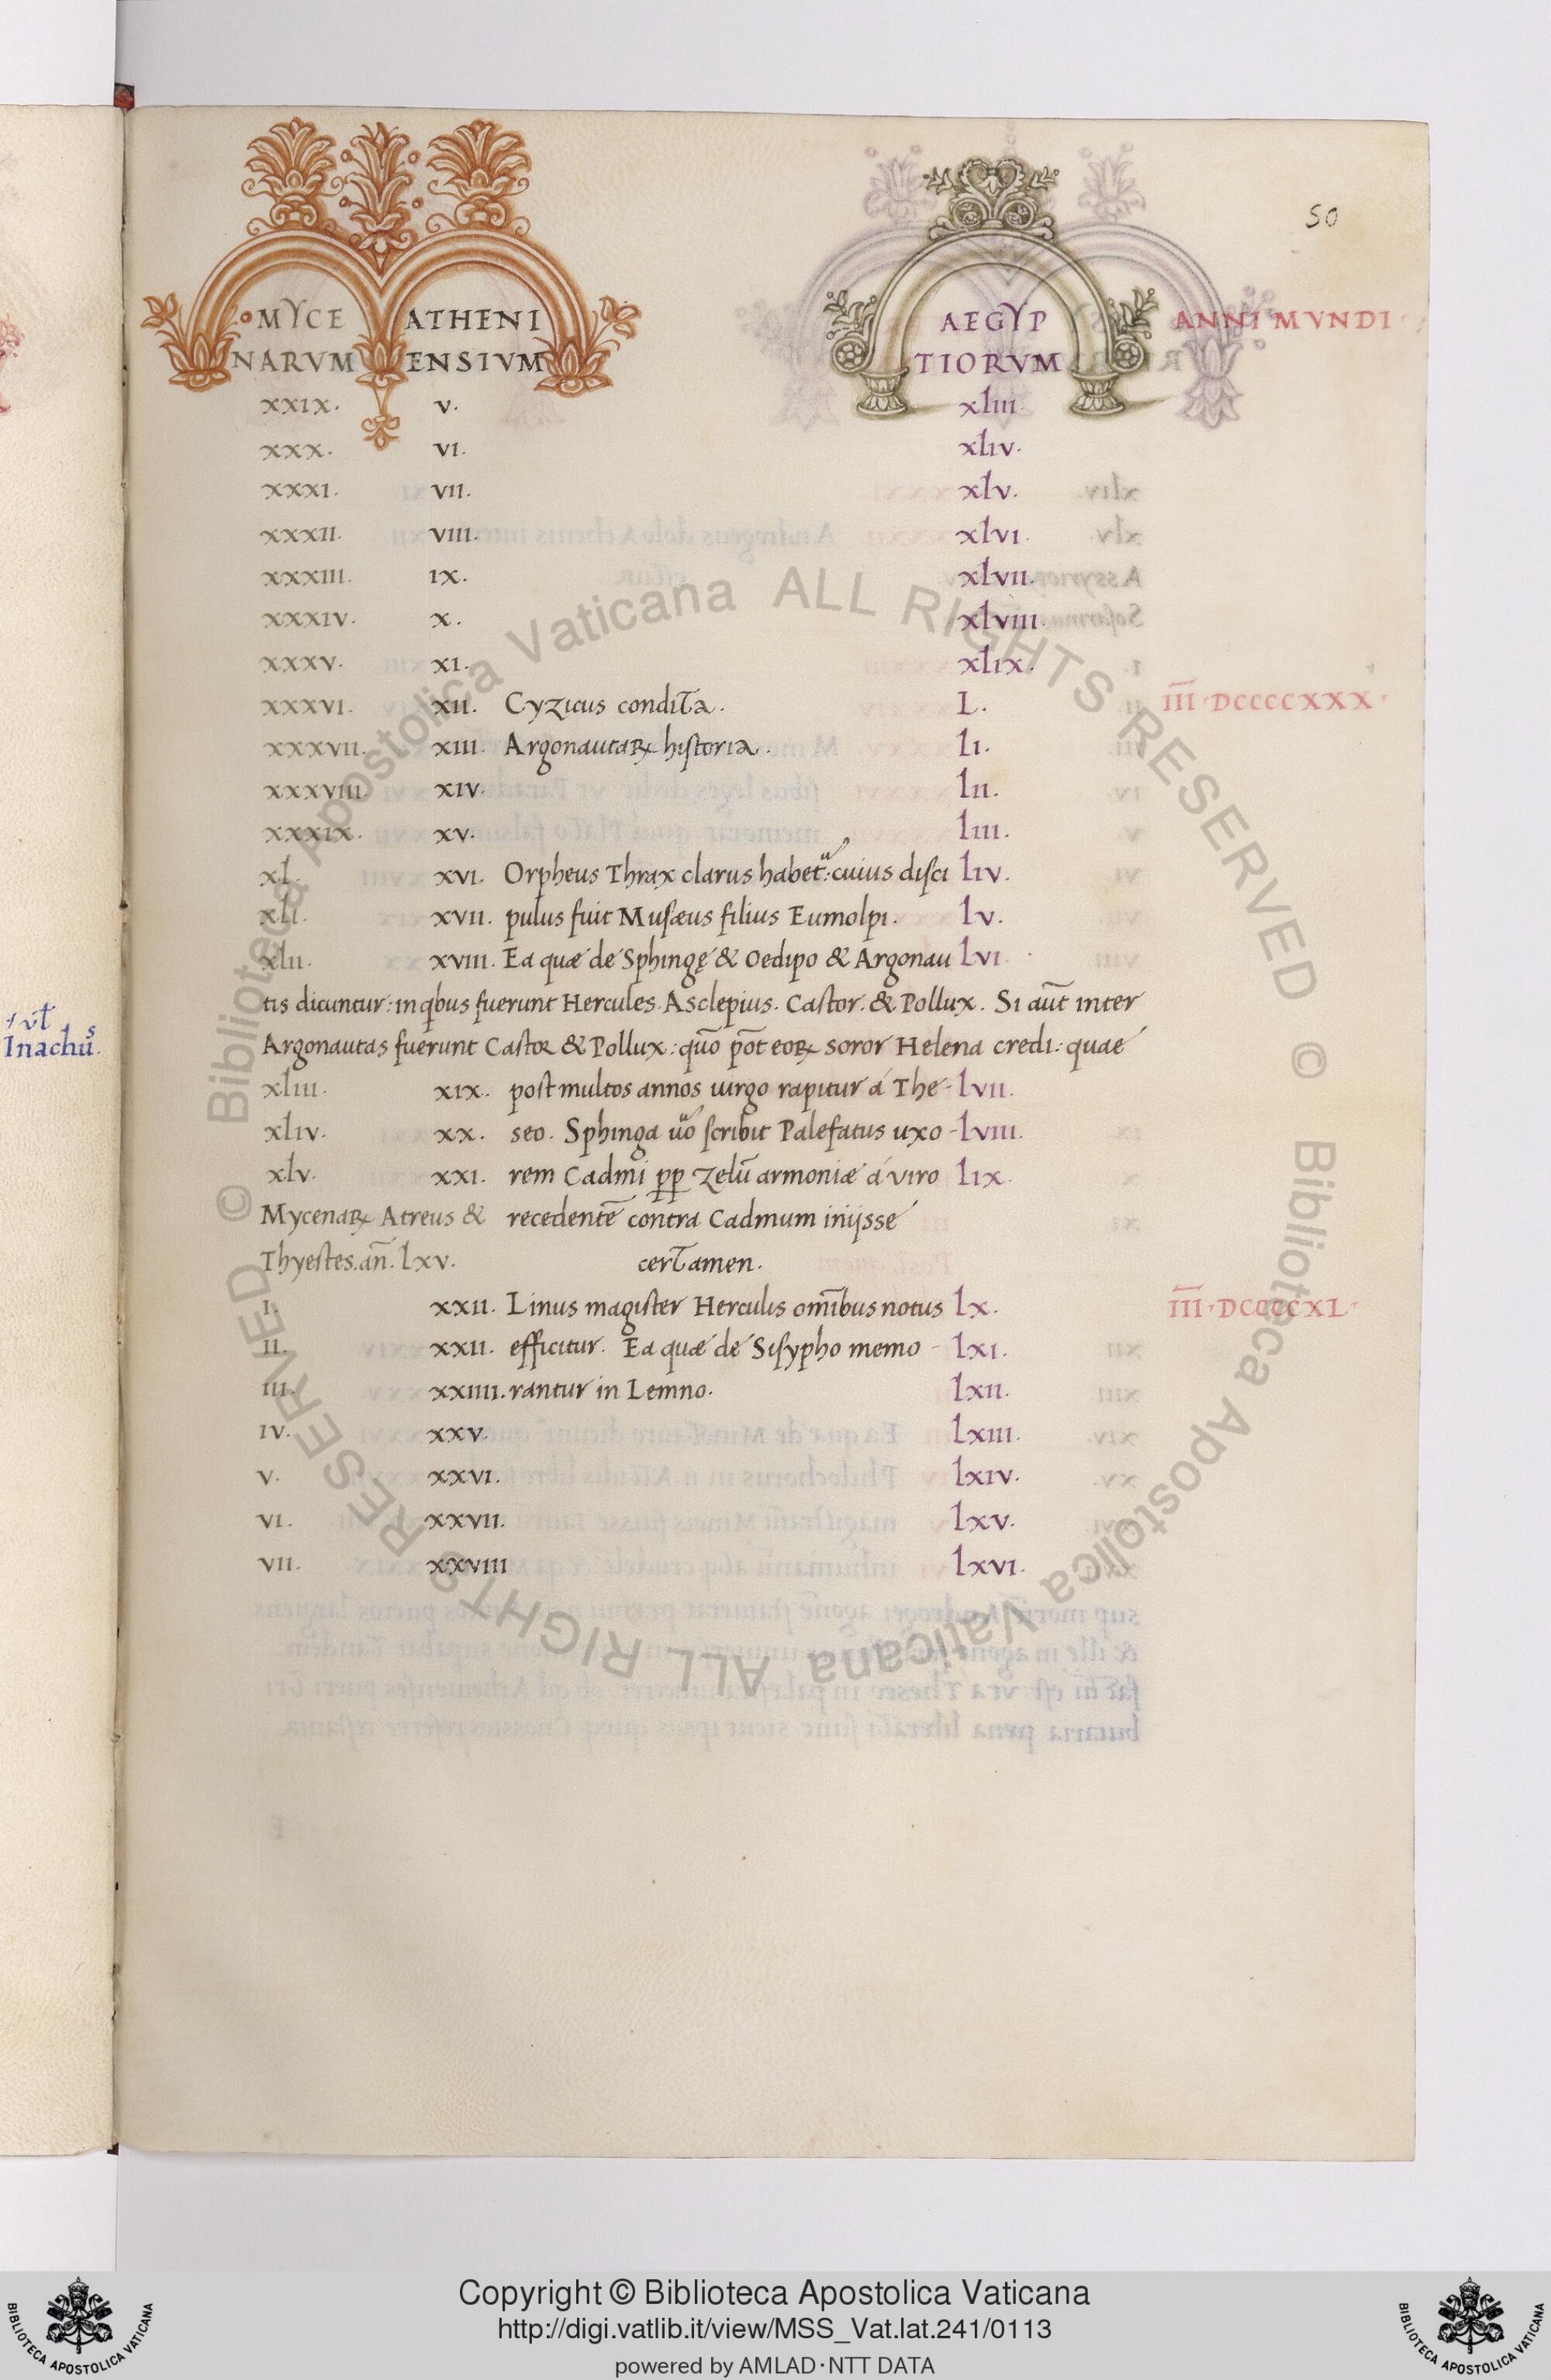 50
MYCE ATHENI AEGYP ANNI MVNDI
NARVM ENSIVM TIORVM
xxix. v. xliii.
xxx. vi. xliv.
xxxi. vii. xlv.
xxxii. viii. xlvi.
xxxiii. ix. xlvii.
xxxiv. x. xlviii.
xxxv. xi. xlix.
xxxvi. xii. Cyzicus condita. L. III·DCCCCXXX·
xxxvii. xiii. Argonautaꝝ historia. li.
xxxviii. xiv. lii.
xxxix. xv. liii.
xl. xvi. Orpheus Thrax clarus habet᷑: cuius disci liv.
xli. xvii. pulus fuit Musæus filius Eumolpi. lv.
xlii. xviii. Ea quæ de Sphingę & Oedipo & Argonau lvi.
tis dicuntur: in qbus fuerunt Hercules. Asclepius. Castor. & Pollux. Si aut̄ inter
Argonautas fuerunt Castor & Pollux: quō pōt eoꝝ soror Helena credi: quae
/ vt̄
Inachū s.
xliii. xix. post multos annos uirgo rapitur á The- lvii.
xliv. xx. seo. Sphinga ūo scribit Palefatus uxo- lviii.
xlv. xxi. rem Cadmi pp zelū armoniæ á viro lix.
Mycenaꝝ Atreus & recedentē contra Cadmum iniisse
Thyestes. an̄. lxv. certamen.
I. xxii. Linus magister Herculis om̄ibus notus lx. III·DCCCCXL·
II. xxii. efficitur. Ea quæ de Sisypho memo- lxi.
III. xxiiii. rantur in Lemno. lxii.
IV. xxv. lxiii.
V. xxvi. lxiv.
VI. xxvii. lxv.
VII. xxviii lxvi.
© Biblioteca Apostolica Vaticana ALL RIGHTS RESERVED © Biblioteca Apostolica Vaticana ALL RIGHTS RESERVED
Copyright © Biblioteca Apostolica Vaticana
http://digi.vatlib.it/view/MSS_Vat.lat.241/0113
powered by AMLAD·NTT DATA
BIBLIOTECA APOSTOLICA VATICANA
BIBLIOTECA APOSTOLICA VATICANA